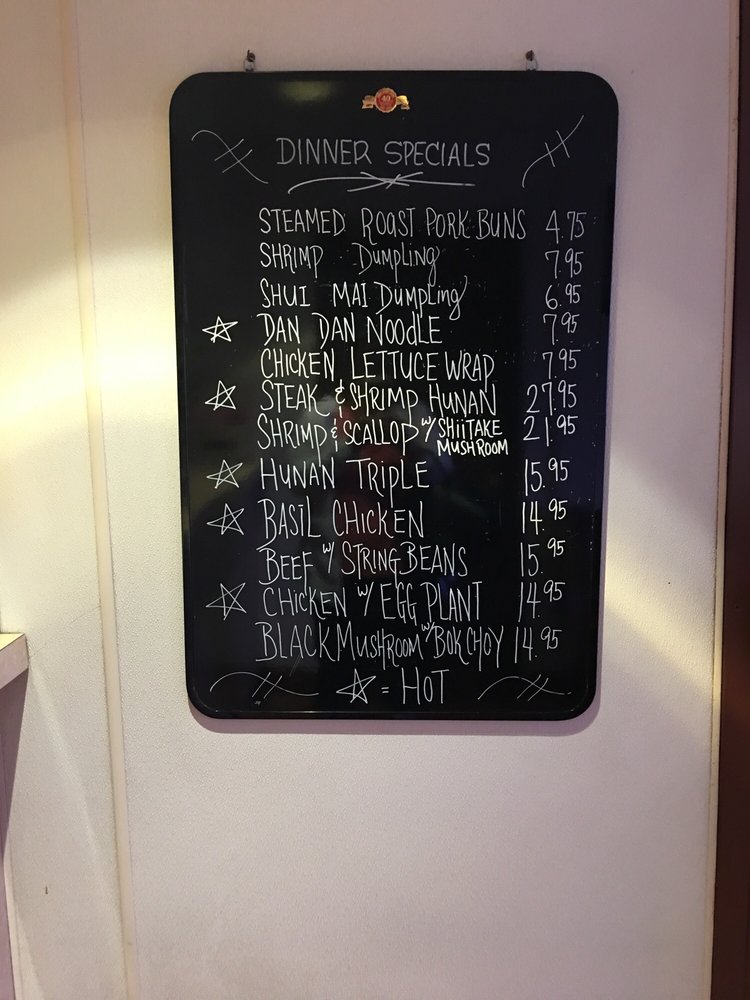 DINNER SPECIALS
STEAMED ROAST PORK BUNS 4.75
SHRIMP DUMPLING 7.95
SHUI MAI DUMPLING 6.95
☆ DAN DAN NOODLE 7.95
CHICKEN LETTUCE WRAP 7.95
☆ STEAK & SHRIMP HUNAN 27.95
SHRIMP & SCALLOP W/ SHIITAKE MUSHROOM 21.95
☆ HUNAN TRIPLE 15.95
☆ BASIL CHICKEN 14.95
BEEF W/ STRING BEANS 15.95
☆ CHICKEN W/ EGG PLANT 14.95
BLACK MUSHROOM W/ BOK CHOY 14.95
☆ = HOT